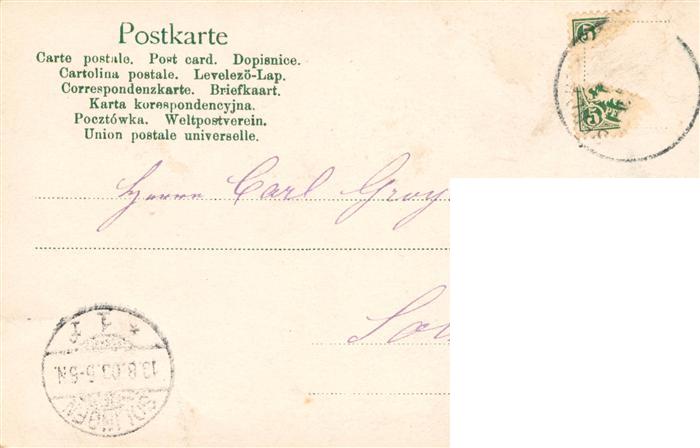 Postkarte
Carte postale. Post card. Dopisnice.
Cartolina postale. Levelező-Lap.
Correspondenzkarte. Briefkaart.
Karta korespondencyjna.
Pocztówka. Weltpostverein.
Union postale universelle.
5
5
Herrn Carl
SOLINGEN
13.8.03.5-6N.